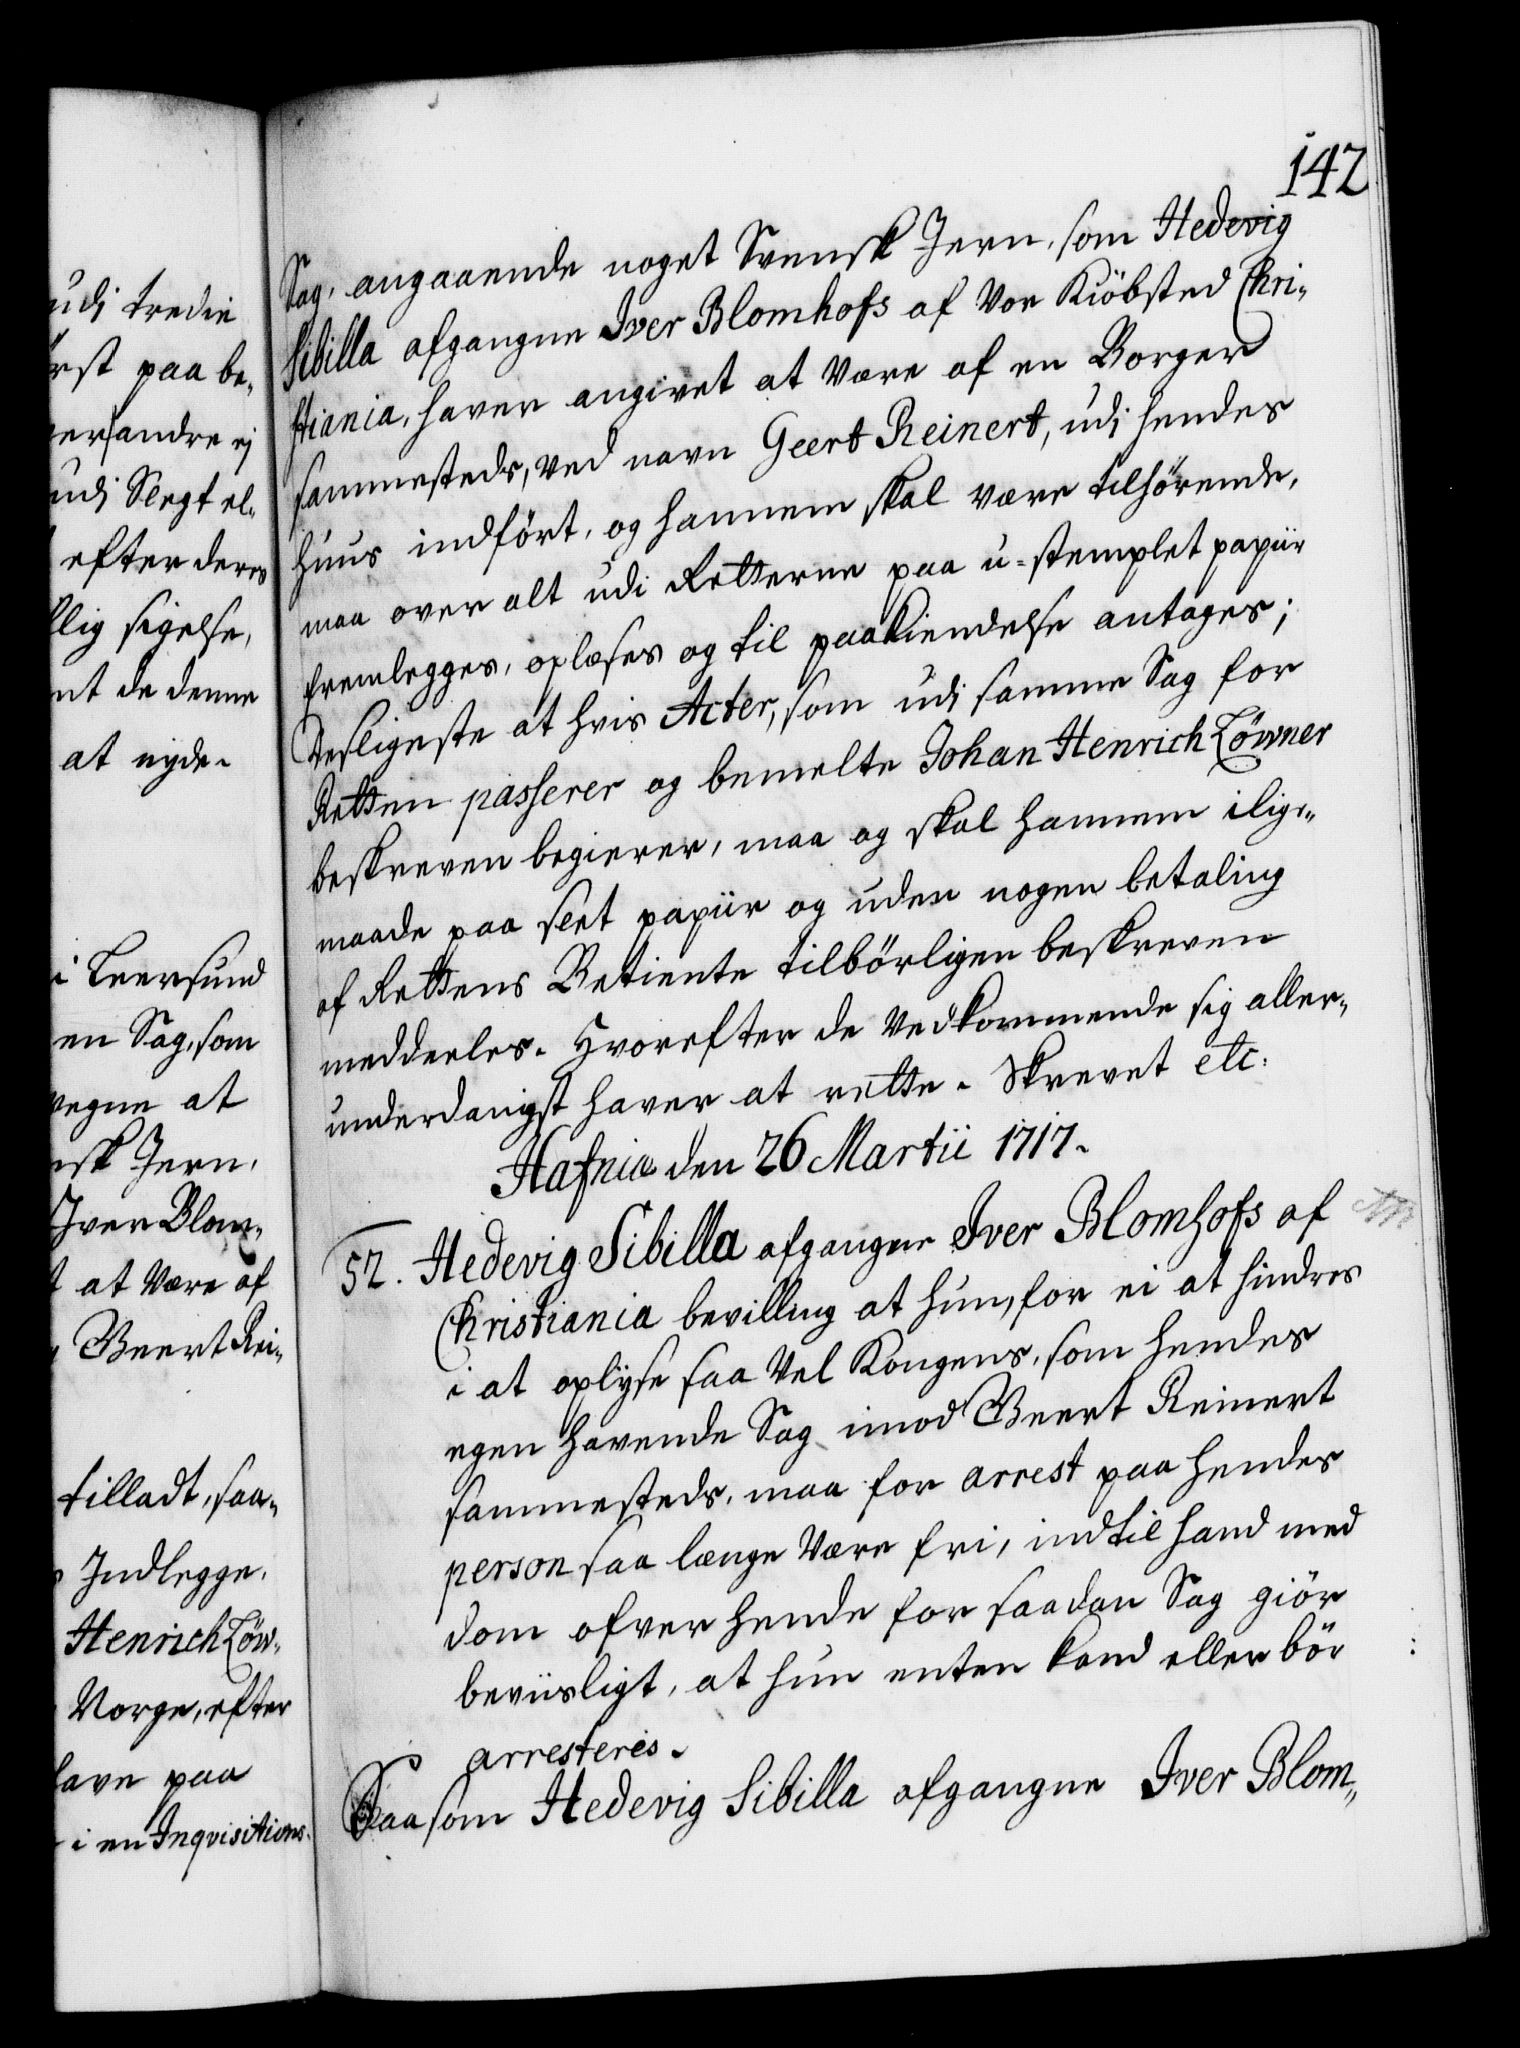 142
Sag, angaaende noget Svensk Jern, som Hedevig
Sibilla afgangne Iver Blomhofs af Vor Kiöbsted Chri-
stiania, haver angivet at være af en Borger
sammesteds, ved navn Geert Reinert, udi hendes
huus indfört, og hannem skal være tilhörende,
maa over alt udi Retterne paa u-stemplet papiir
fremlegges, oplæses og til paakiendelse antages;
Desligeste at hvis Acter, som udi samme Sag for
Retten passerer og bemelte Johan Henrich Löwner
beskreven begierer, maa og skal hannem i lige-
maade paa slet papiir og uden nogen betaling
af Rettens Betiente tilbörligen beskreven
meddeeles. Hvorefter de Vedkommende sig aller-
underdanigst haver at rette. Skrevet etc:
Hafniæ den 26 Martii 1717.
52. Hedevig Sibilla afgangne Iver Blomhofs af
Christiania bevilling at hun, for ei at hindres
i at oplyse saa vel Kongens, som hendes
egen havende Sag imod Geert Reinert
sammesteds, maa for arrest paa hendes
person saa længe være fri, indtil hand med
dom ofver hende for saadan Sag giör
beviisligt, at hun enten kand eller bör
arresteris.
Saasom Hedevig Sibilla afgangne Iver Blom-
udi tredie
rst paa be-
andre ej
udi Slegt el-
efter deres
lig sigelse,
nt de denne
at nyde.
i Leersund
en Sag, som
vegne at
nsk Jern,
Iver Blom-
at være af
Geert Rei-
tilladt, saa-
Indlegge,
Henrich Löw-
Norge, efter
lave paa
i en Inqvisitions-